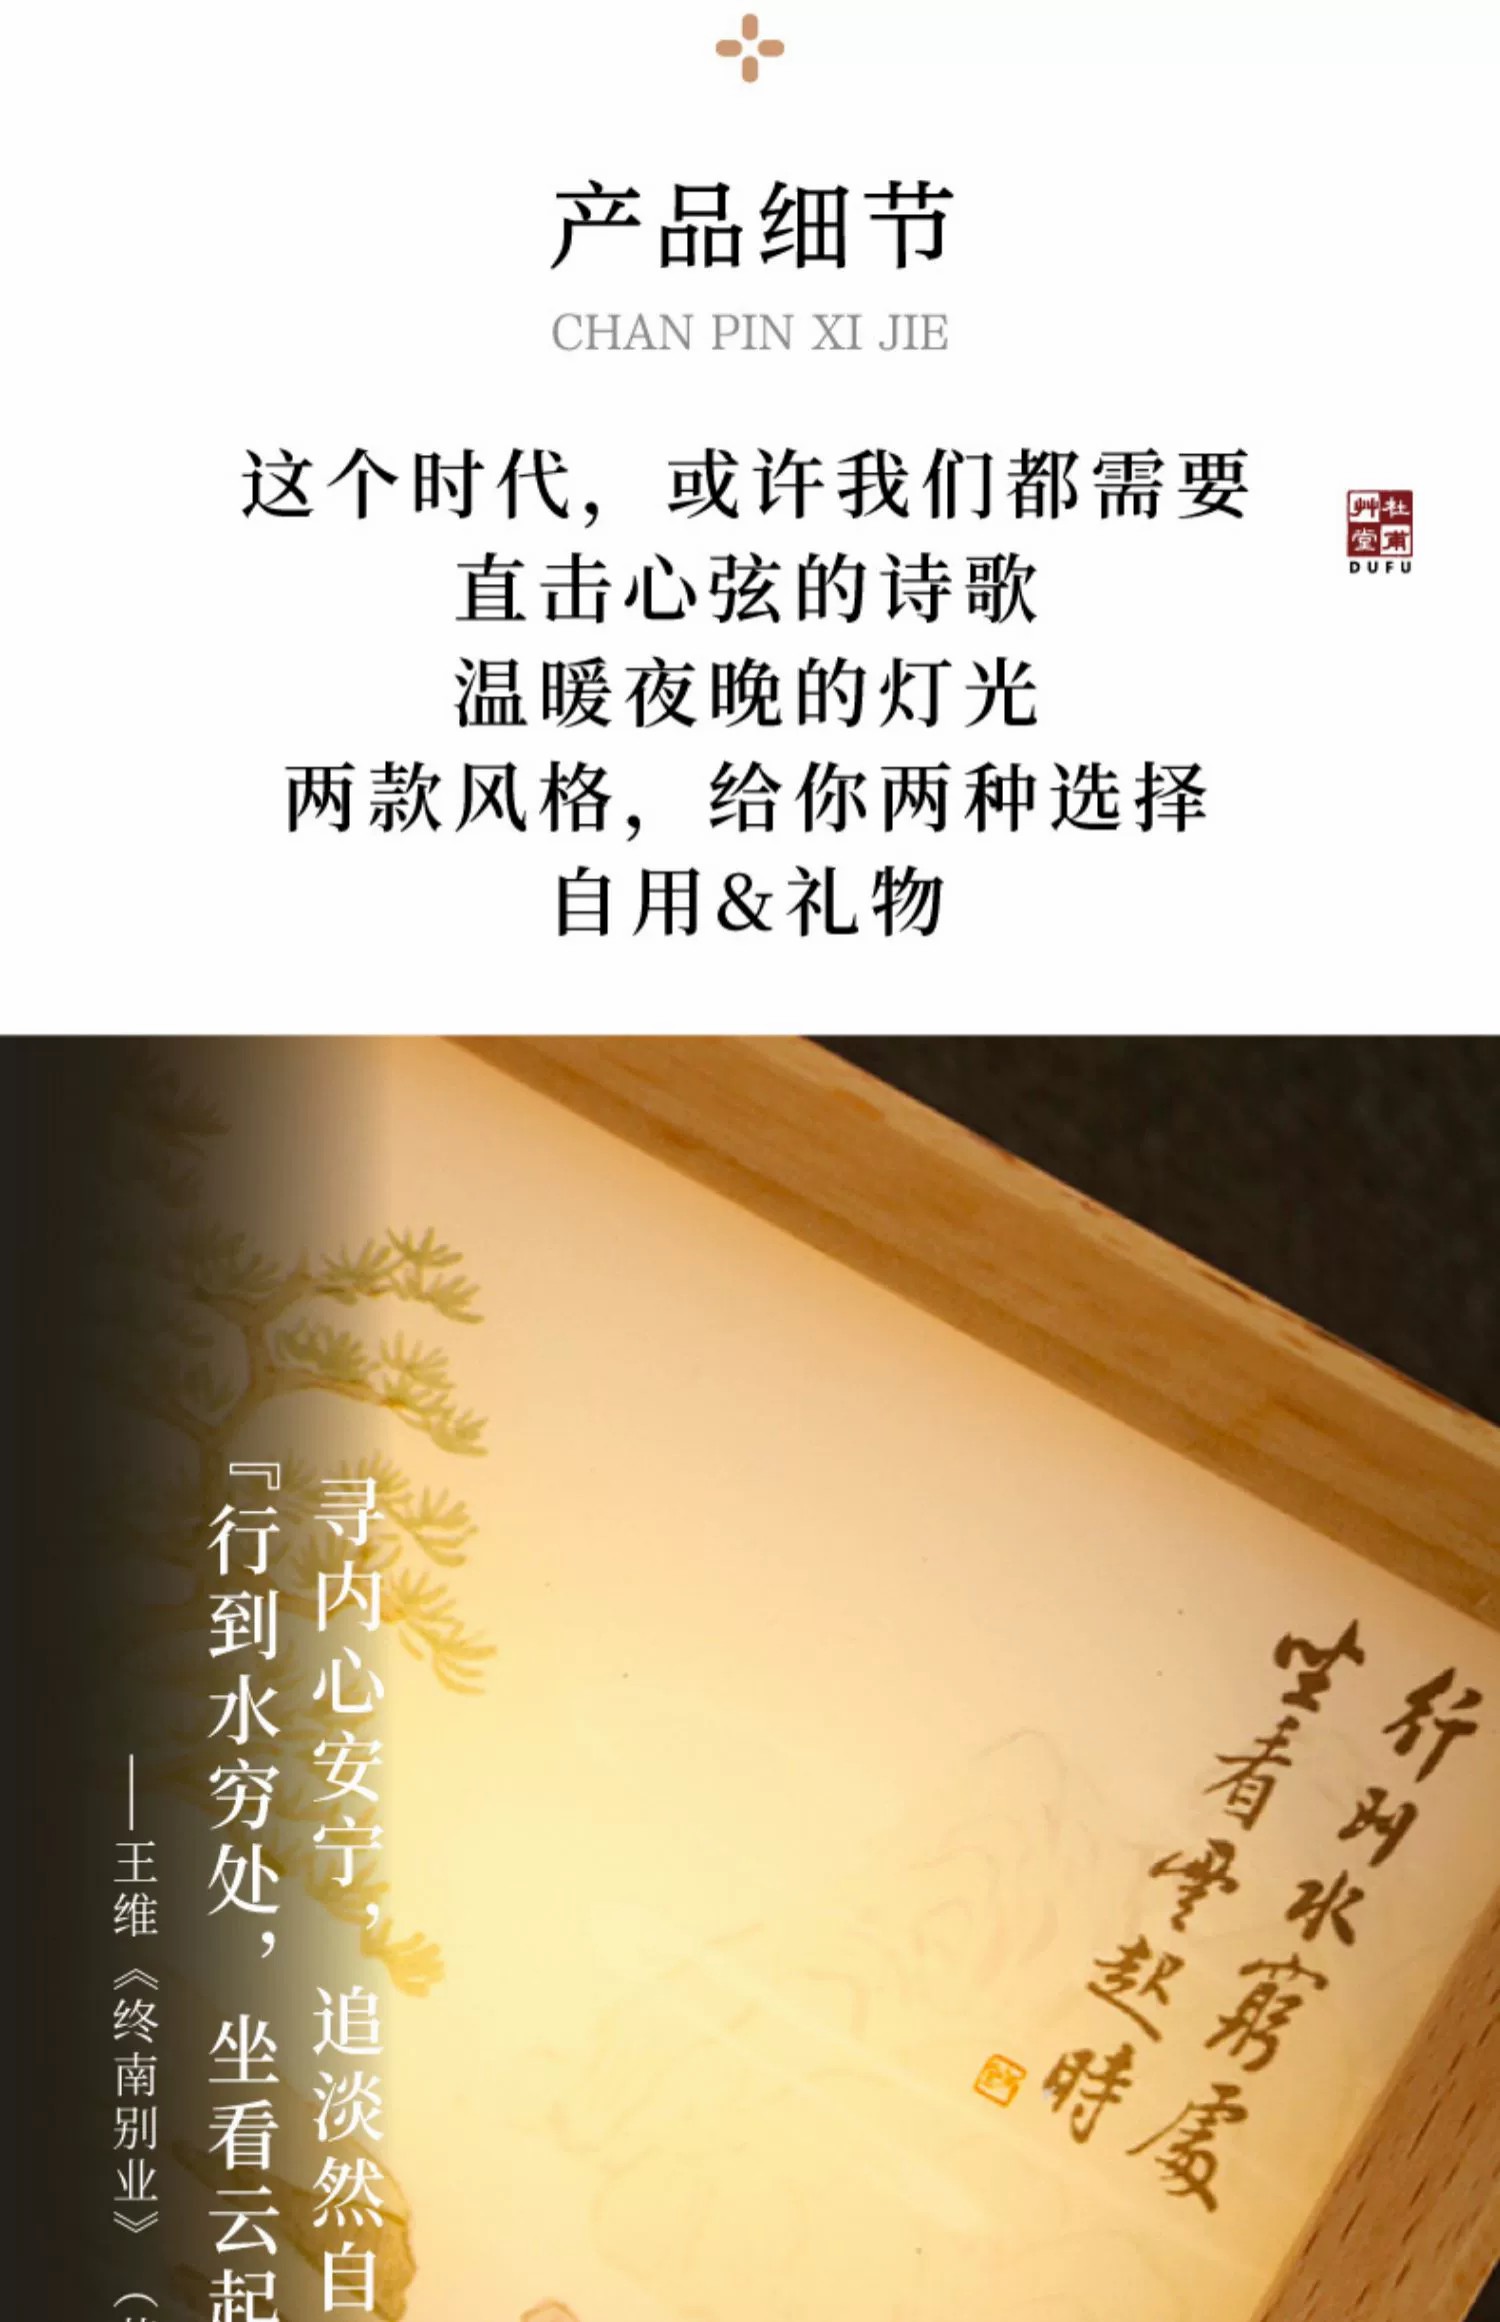 产品细节
CHAN PIN XI JIE
这个时代，或许我们都需要
直击心弦的诗歌
温暖夜晚的灯光
两款风格，给你两种选择
自用&礼物
杜甫
艸堂
DUFU
寻内心安宁，追淡然自
『行到水穷处，坐看云起
——王维《终南别业》（
行到水窮處
坐看雲起時